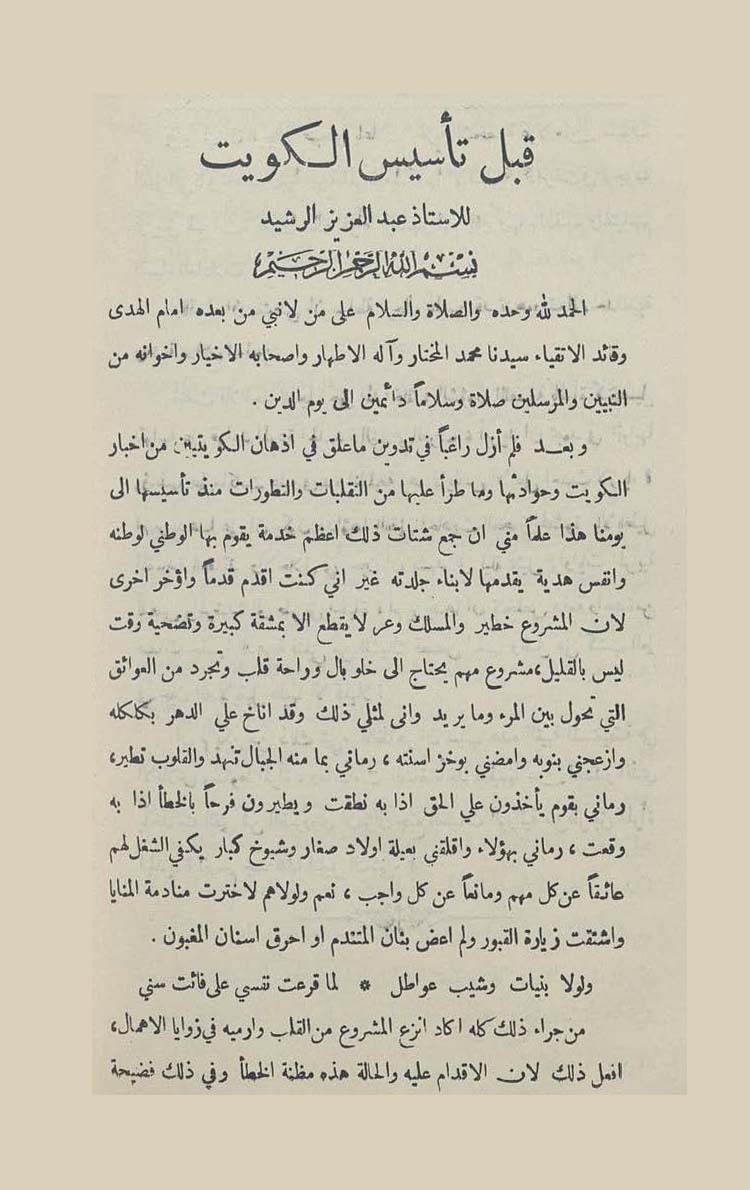 قبل تأسيس الكويت
للاستاذ عبد العزيز الرشيد
بسم الله الرحمن الرحيم
الحمد لله وحده والصلاة والسلام على من لا نبي من بعده امام الهدى
وقائد الاتقياء سيدنا محمد المختار وآله الاطهار واصحابه الاخيار واخوانه من
النبيين والمرسلين صلاة وسلاماً دائمين الى يوم الدين .
وبعد فلم أزل راغباً في تدوين ماعلق في اذهان الكويتيين من اخبار
الكويت وحوادثها وما طرأ عليها من التقلبات والتطورات منذ تأسيسها الى
يومنا هذا علماً مني ان جمع شتات ذلك اعظم خدمة يقوم بها الوطني لوطنه
وانفس هدية يقدمها لابناء جلدته غير اني كنت اقدم قدماً واؤخر اخرى
لان المشروع خطير والمسلك وعر لا يقطع الا بمشقة كبيرة وتضحية وقت
ليس بالقليل، مشروع مهم يحتاج الى خلو بال وراحة قلب وتجرد من العوائق
التي تحول بين المرء وما يريد وانى لمثلي ذلك وقد اناخ علي الدهر بكلكله
وازعجني بنوبه وامضني بوخز اسنته ، رماني بما منه الجبال تنهد والقلوب تطير،
رماني بقوم يأخذون علي الحق اذا به نطقت ويطيرون فرحاً بالخطأ اذا به
وقعت ، رماني بهؤلاء واقلقني بعيلة اولاد صغار وشيوخ كبار يكفي الشغل لهم
عائقاً عن كل مهم ومانعاً عن كل واجب ، نعم ولولاهم لاخترت منادمة المنايا
واشتقت زيارة القبور ولم اعض بنان المتندم او احرق اسنان المغبون .
ولولا بنيات وشيب عواطل * لما قرعت نفسي على فائت سني
من جراء ذلك كله اكاد انزع المشروع من القلب وارميه في زوايا الاهمال،
افعل ذلك لان الاقدام عليه والحالة هذه مظنة الخطأ وفي ذلك فضيحة